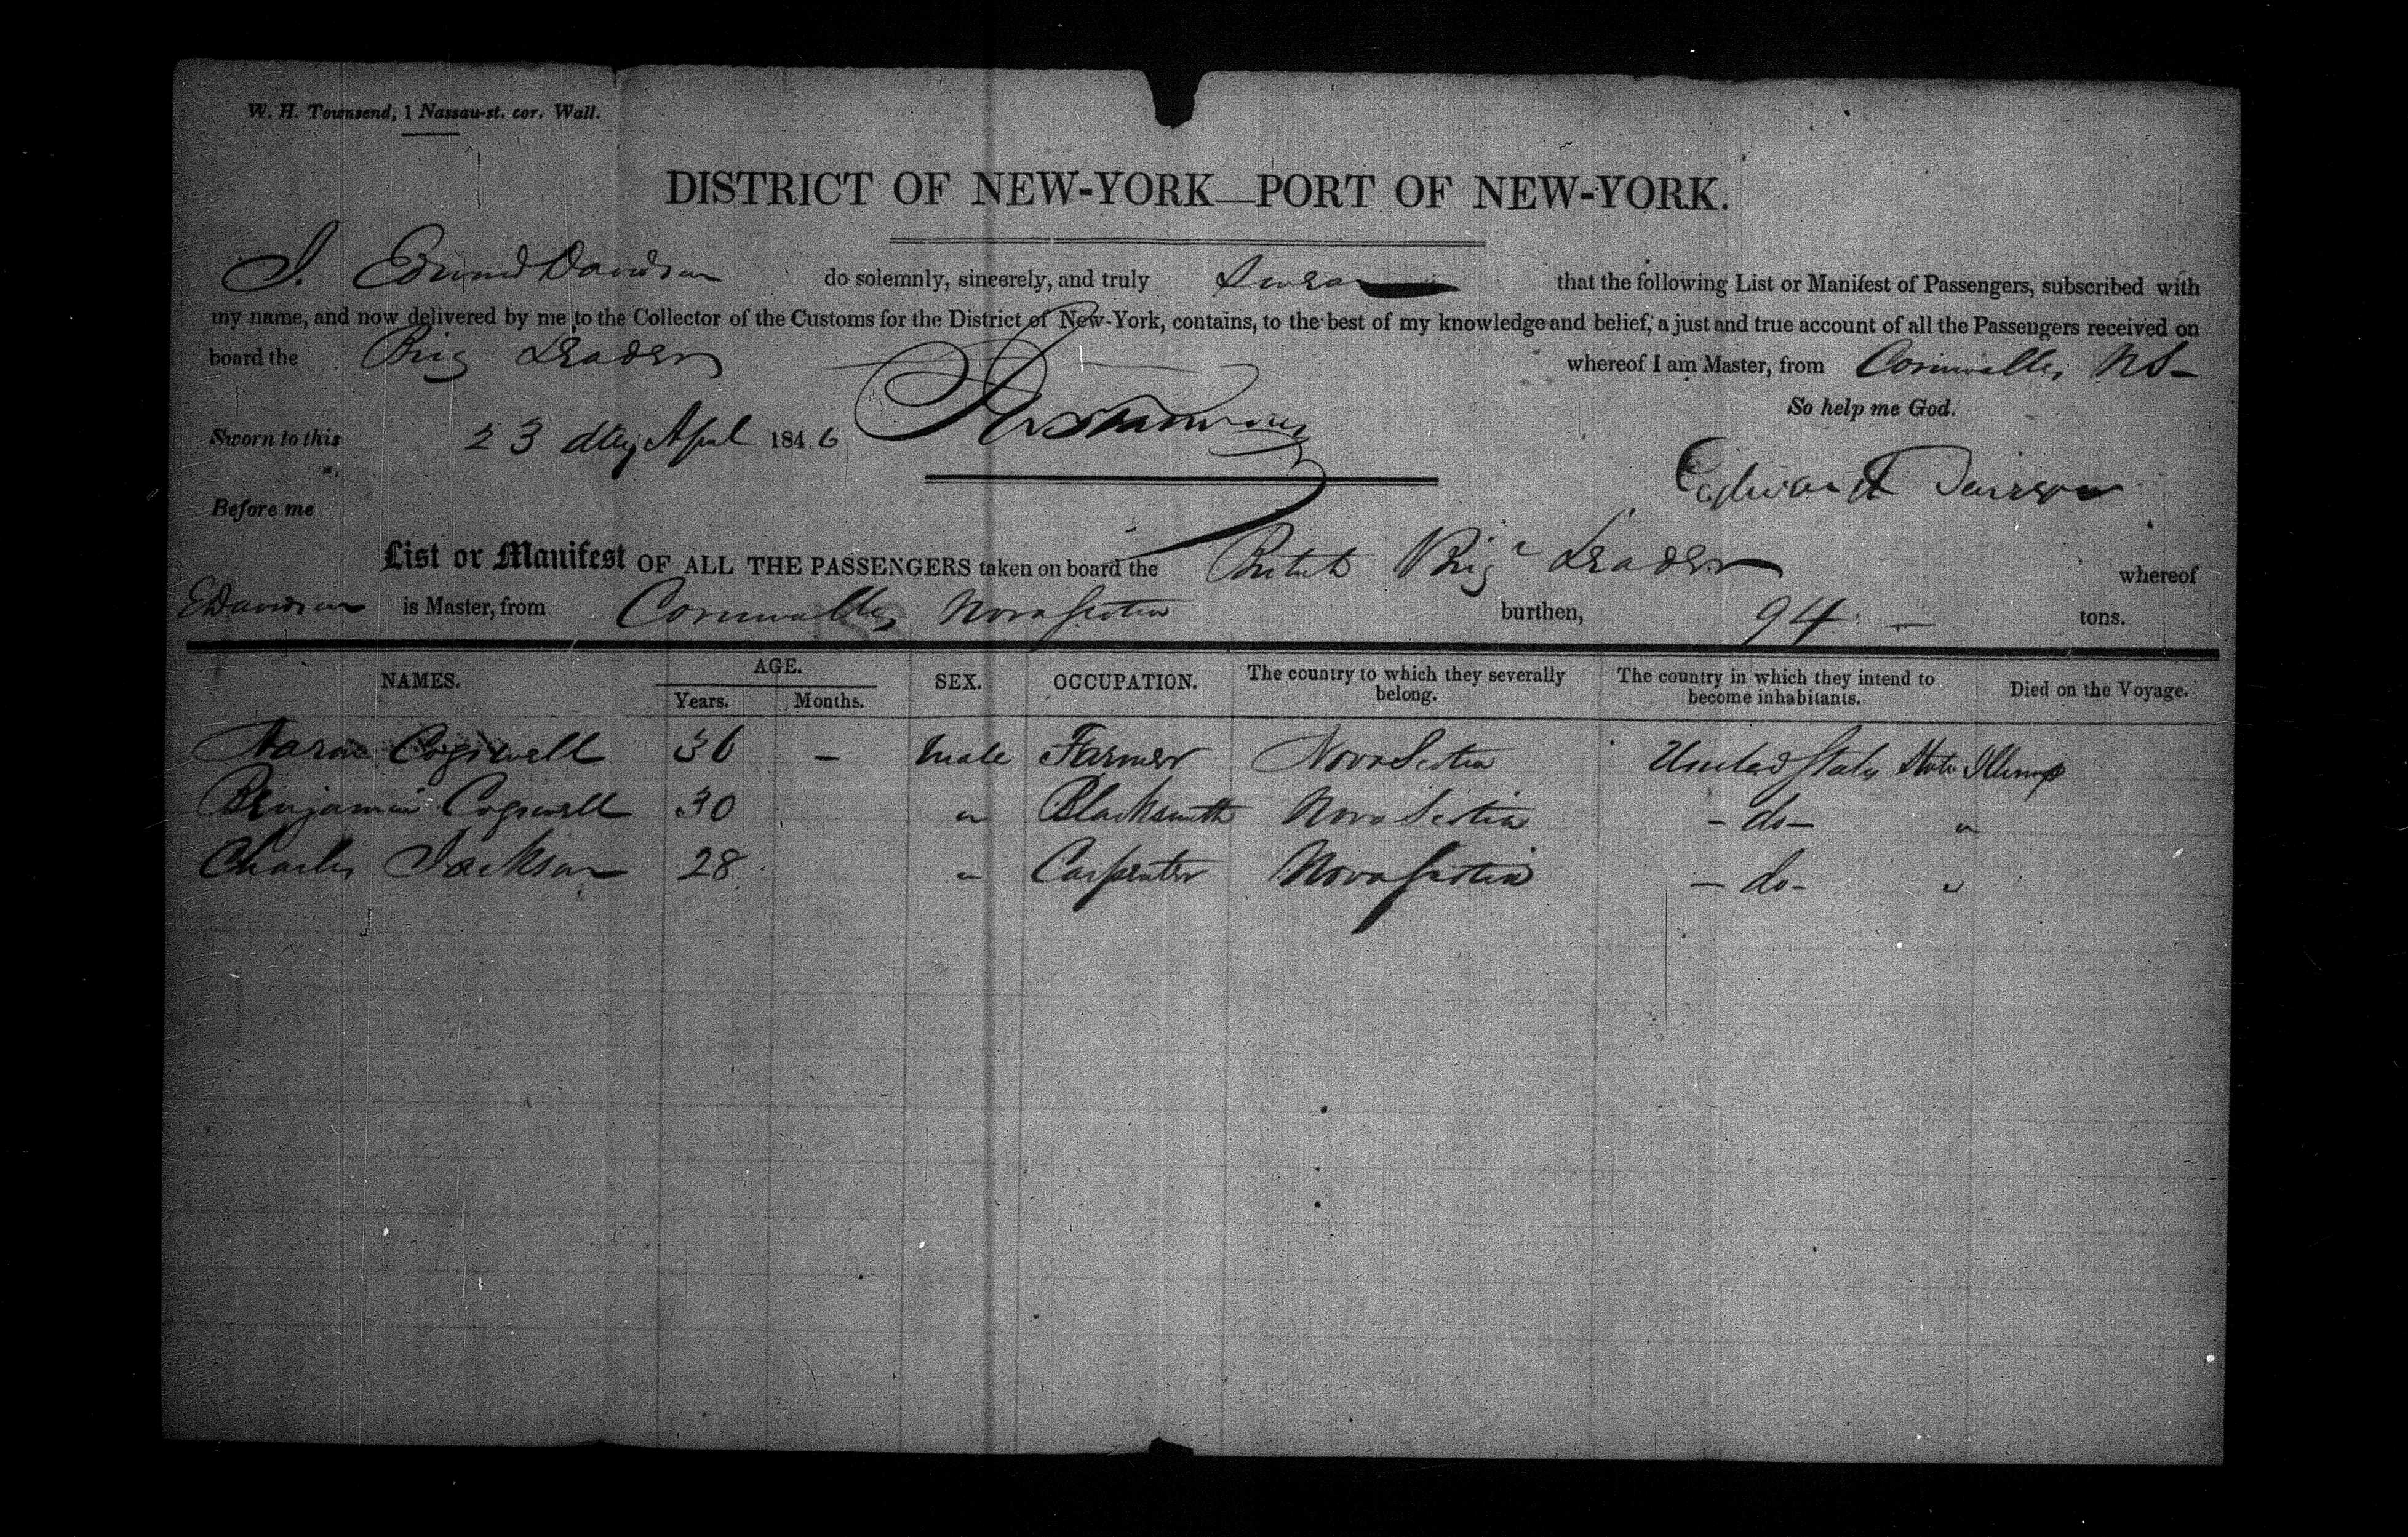 W. H. Townsend, 1 Nassau-st. cor. Wall.
DISTRICT OF NEW-YORK—PORT OF NEW-YORK.
I. Edward Davidson do solemnly, sincerely, and truly Swear that the following List or Manifest of Passengers, subscribed with
my name, and now delivered by me to the Collector of the Customs for the District of New-York, contains, to the best of my knowledge and belief, a just and true account of all the Passengers received on
board the Brig Leader whereof I am Master, from Cornwallis NS—
So help me God.
Sworn to this 23 day April 1846
Edward
Before me
List or Manifest OF ALL THE PASSENGERS taken on board the British Brig Leader whereof
E Davidson is Master, from Cornwallis Nova Scotia burthen, 94 — tons.
NAMES. AGE. SEX. OCCUPATION. The country to which they severally belong. The country in which they intend to become inhabitants. Died on the Voyage.
Years. Months.
Aaron Cogswell 36 — Male Farmer Nova Scotia United States State Illinois
Benjamin Cogswell 30 " Blacksmith Nova Scotia - do - "
Charles Jackson 28 " Carpenter Nova Scotia - do - "